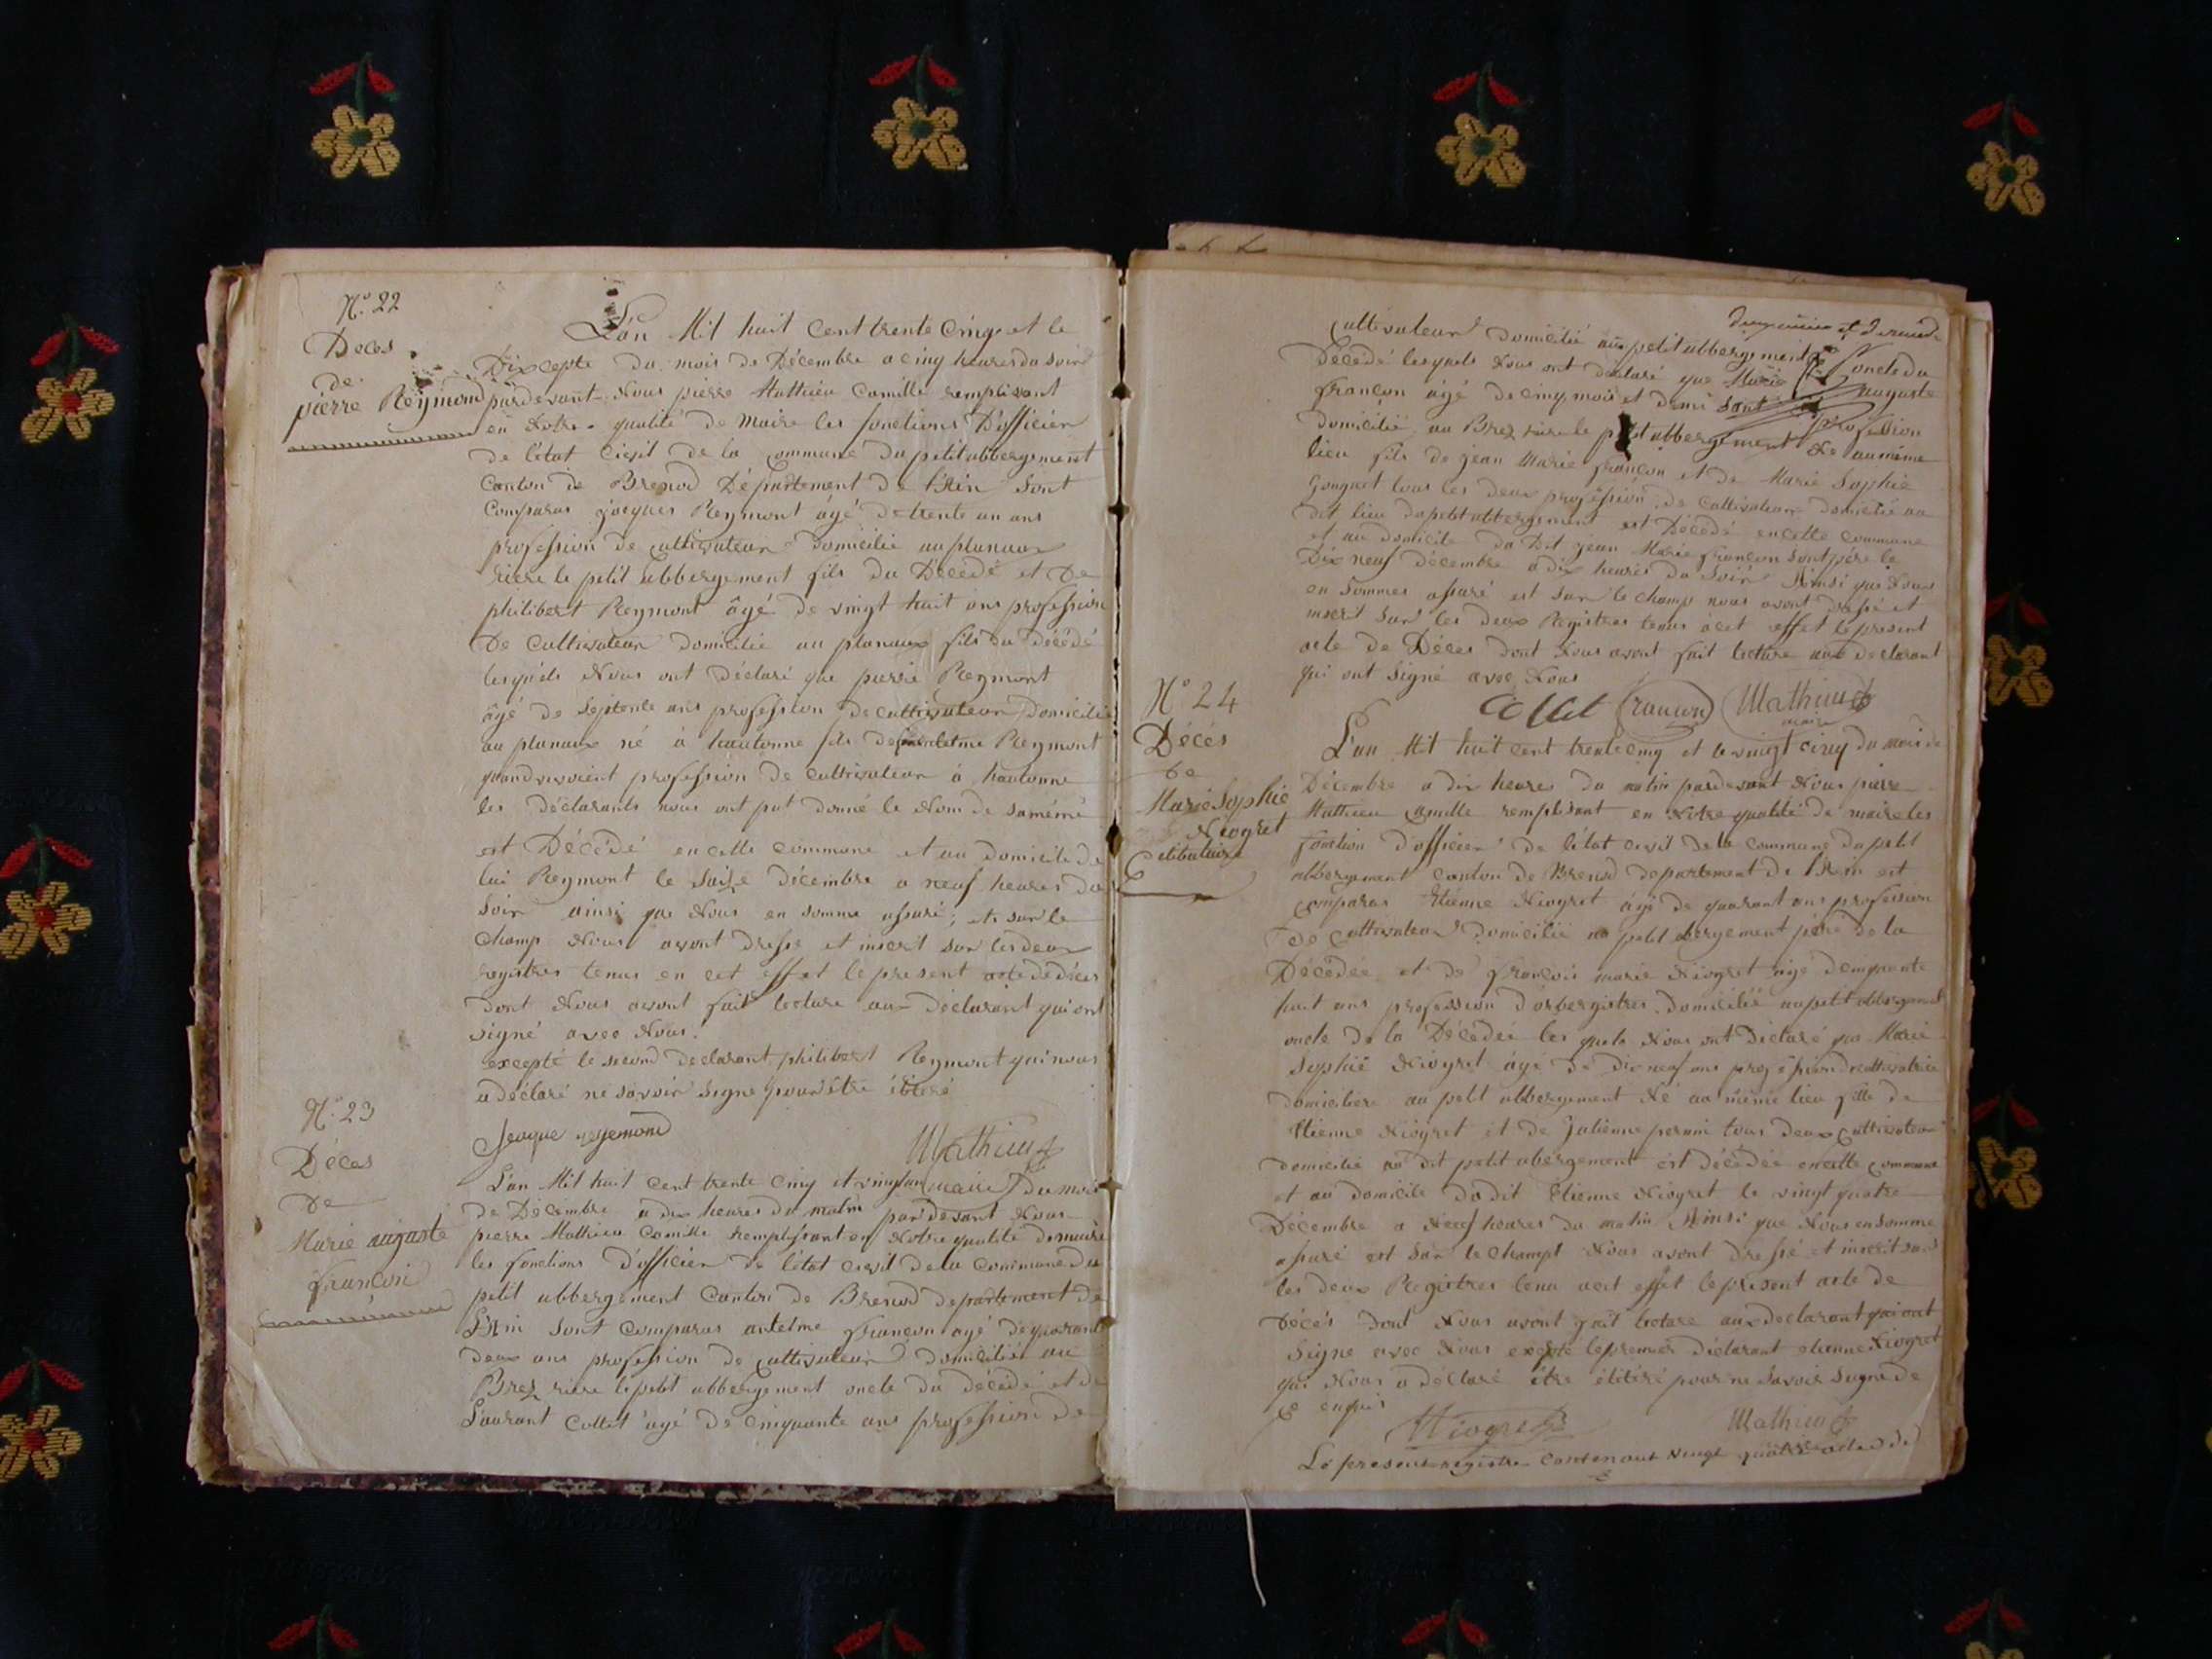 N.° 22
Deces
de
pierre Reymond
L'an Mil huit Cent trente Cinq et le
Dix septe du mois de Décembre a cinq heures du soir
pardevant Nous pierre Mathieu Camille remplisant
en Notre qualité de Maire les fonctions D'officier
de l'état civil de la Commune du petit abbergement
Canton de Brenod Département de l'Ain Sont
Comparus Jacques Reymont âgé de trente un ans
profession de cultivateur domicilié au planaux
riere le petit abbergement fils du Décédé et De
philibert Reymont âgé de vingt huit ans profession
De cultivateur domicilié au planaux fils du Décédé
lesquels Nous ont Déclaré que pierre Reymont
âgé de septente ans profession de cultivateur domicilié
au planaux né à hautonne fils de Reymont
profession de cultivateur à hautonne
les déclarants nous ont put donné le Nom de samère
est Décédé en cette commune et au domicile de
lui Reymont le Saize décembre a neuf heures du
soir ainsi que Nous en somme assuré; et sur le
champ Nous avont dressé et inscrit sur les deux
registres tenus en cet effet le present acte de déces
dont Nous avont fait lecture aux déclarant qui ont
signé avec Nous.
excepté le second declarant philibert Reymont qui nous
a déclaré ne savoir signé pour être
Jeaque reyemond
Mathieu
maire
N.° 23
Déces
De
Marie auguste
françon
L'an Mil huit Cent trente Cinq et vingt un du mois
de Décembre a dix heures du matin par devant Nous
pierre Mathieu Camille remplissant en Notre qualité de maire
les fonctions D'officier de l'état civil de la Commune du
petit abbergement Canton de Brenod departement de
L'Ain sont comparus antelme françon agé de quarante
deux ans profession de cultivateur domicilié au
Brez riere le petit abbergement oncle du décédé et de
Laurant Collet âgé de cinquante ans profession de
cultivateur domicilié au petit abbergement
Décédé lesquels Nous ont déclaré que Marie auguste
françon âgé de cinq mois et demi profession
domicilié au Brez riere le petit abbergement Né au même
lieu fils de jean Marie françon et de Marie Sophie
Gouguet tous les deux profession de cultivateur domicilié au
dit lieu du petit abbergement est Décédé en cette commune
et au domicile du Dit jean Marie françon sont père le
Dix neuf décembre a dix heures du Soir Ainsi que Nous
en Sommes assuré est sur le champ nous avont dressé et
inscrit sur les deux Registres tenus acet effet le present
acte de Déces dont Nous avont fait lecture aux declarant
qui ont Signé avec Nous
Collet françon Mathieu
maire
N.° 24
Décès
de
Marie Sophie
Niogret
Celibataire
L'an Mil huit cent trente cinq et le vingt cinq du mois de
Décembre a dix heures du matin pardevant Nous pierre
Mathieu Camille remplisant en Notre qualité de maire les
fonction d'officier de l'état civil de la commune du petit
abbergement canton de Brenod departement de l'Ain est
comparus Etiénne Niogret âgé de quarant ans profession
de cultivateur domicilié au petit abergement père de la
Décédée et de françois marie Niogret âgé de cinquante
huit ans profession d'orbergistres domicilié au petit abbergement
oncle de la Décédée les quels Nous ont déclaré que Marie
Sophie Niogret âgé de dix neuf ans profession de cultivatrice
domiciliere au petit abbergement Né au même lieu fille de
Etienne Niogret et de Julienne tous deux cultivateur
domicilié au dit petit abergement est décédée en cette commune
et au domicile du dit Etienne Niogret le vingt quatre
Décembre a Neuf heures du matin Ainsi que Nous en somme
assuré est sur le champt Nous avont dressé et inscrit sur
les deux Registres tenu acet effet le présent acte de
Décés Dont Nous avont fait lecture aux declarant qui ont
Signé avec Nous exepté le premier declarant etienne Niogret
qui Nous a déclaré être pour ne savoir Signé de
Ce enquis
Niogret
Mathieu
Le présent registre contenant vingt quatre actes de